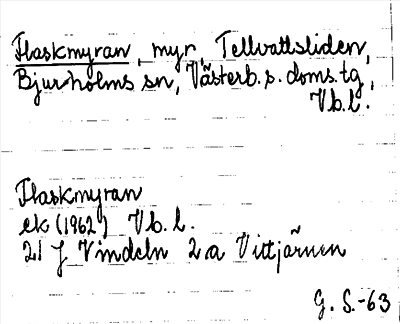 Flaskmyran, myr, Tellvattsliden,
Bjurholms sn, Västerb. s. doms. tg,
Vb. l.
Flaskmyran
ek (1962) Vb. l.
21 J Vindeln 2 a Vittjärnen
G. S. -63